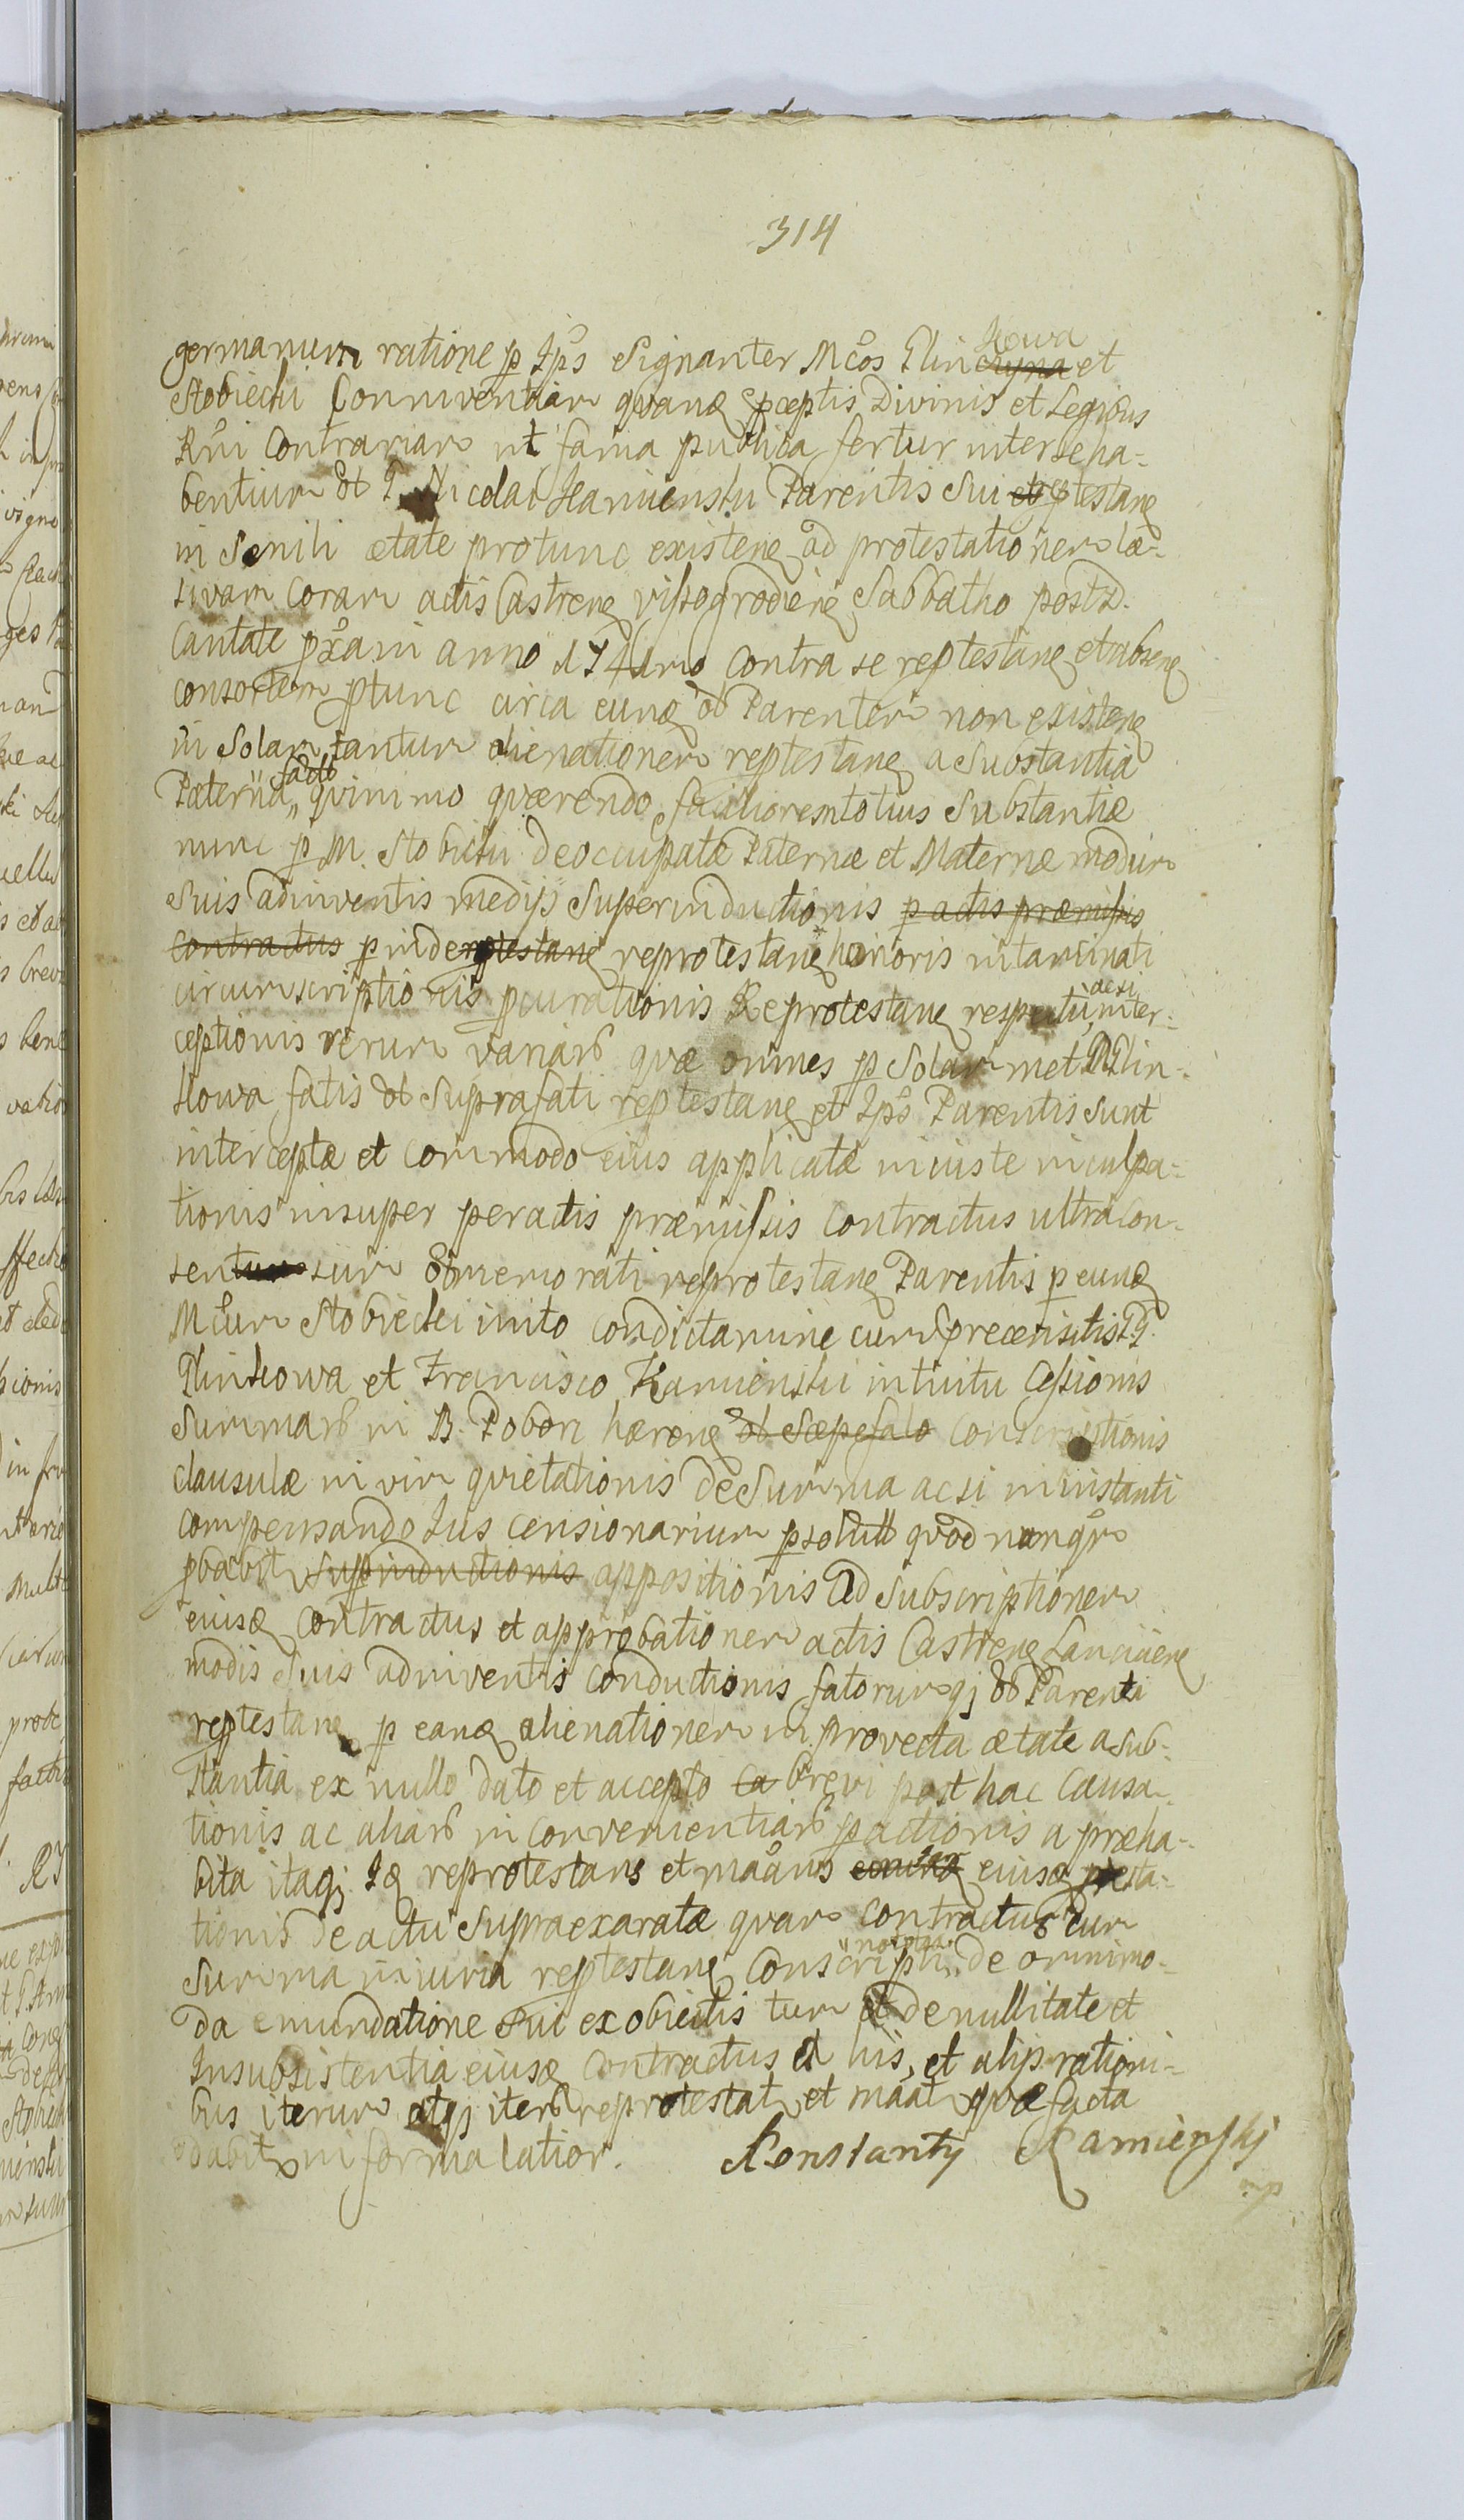 314
germanum ratione p Ips Signanter Mcos Glinkowa et
Stobiecki Conniventiam quanq pceptis Divinis et Legibus
Rni Contrariam ut fama publica fertur inter se ha-
bentium ol G. Nicolai Kamienski Parentis Sui reptestanq
in Senili ætate protunc existenq ad protestationem læ-
sivam Coram actis Castrenq Vissogrodienq Sabbatho post D.
Cantate pxam anno contra se reptestanq et absenq
consortem ptunc circa eunq ol Parentem non existenq
in Solam tantum alienationem reptestanq a Substantia
Paterna facto quinimo quærendo faciliorem totius Substantiæ
nunc p M. Stobicki deoccupatæ Paternæ et Maternæ modum
Suis adinventis medijs Superinductionis p actis præmissis
Contractus p inde reptestanq reprotestanq honoris intaminati
circumscriptionis pcurationis Reprotestanq respectu ac si inter-
ceptionis rerum variarb quæ omnes p Solam met Glin-
kowa fatis ol Suprafati reptestanq et Ips Parentis sunt
interceptæ et commodo eius applicatæ iniuste inculpa-
tionis insuper peractis præmissis Contractus ultra con-
sensum ol memorati reprotestanq Parentis p eunq
Mcum Stobiecki inito condictamine cum precensitis GG.
Glinkowa et Francisco Kamienski intuitu Cessionis
Summarb in B. Pobor hærenq ol Sæpefato Conscriptionis
clausulæ in vim quietationis de Summa ac si in instanti
compensando Ius censionarium psoluti quod nunqr
pbabit Supinductionis appositionis ad Subscriptionem
eiusq Contractus et approbationem actis Castrenq Lancicienq
modis Suis adinventis conductionis fatorumqj ol Parenti
reptestanq p eanq alienationem in provecta ætate a Sub-
stantia ex nullo dato et accepto brevi post hac causa-
tionis ac aliarb inconvenientiarb pactionis a præha-
bita itaqj Iq reprotestans et maans eiusq ptesta-
tionis de actu Supra exaratæ quam Contractus cum
Summa iniuria reptestanq Conscripti de omnimo-
da emundatione Sui ex obiectis tum et de nullitate et
Insubsistentia eiusq Contractus et his, et alijs rationi-
bus iterum atqj iterb reprotestat et maat quæ facta
dabit in forma latiori. Konstanty Kamienskj
mp